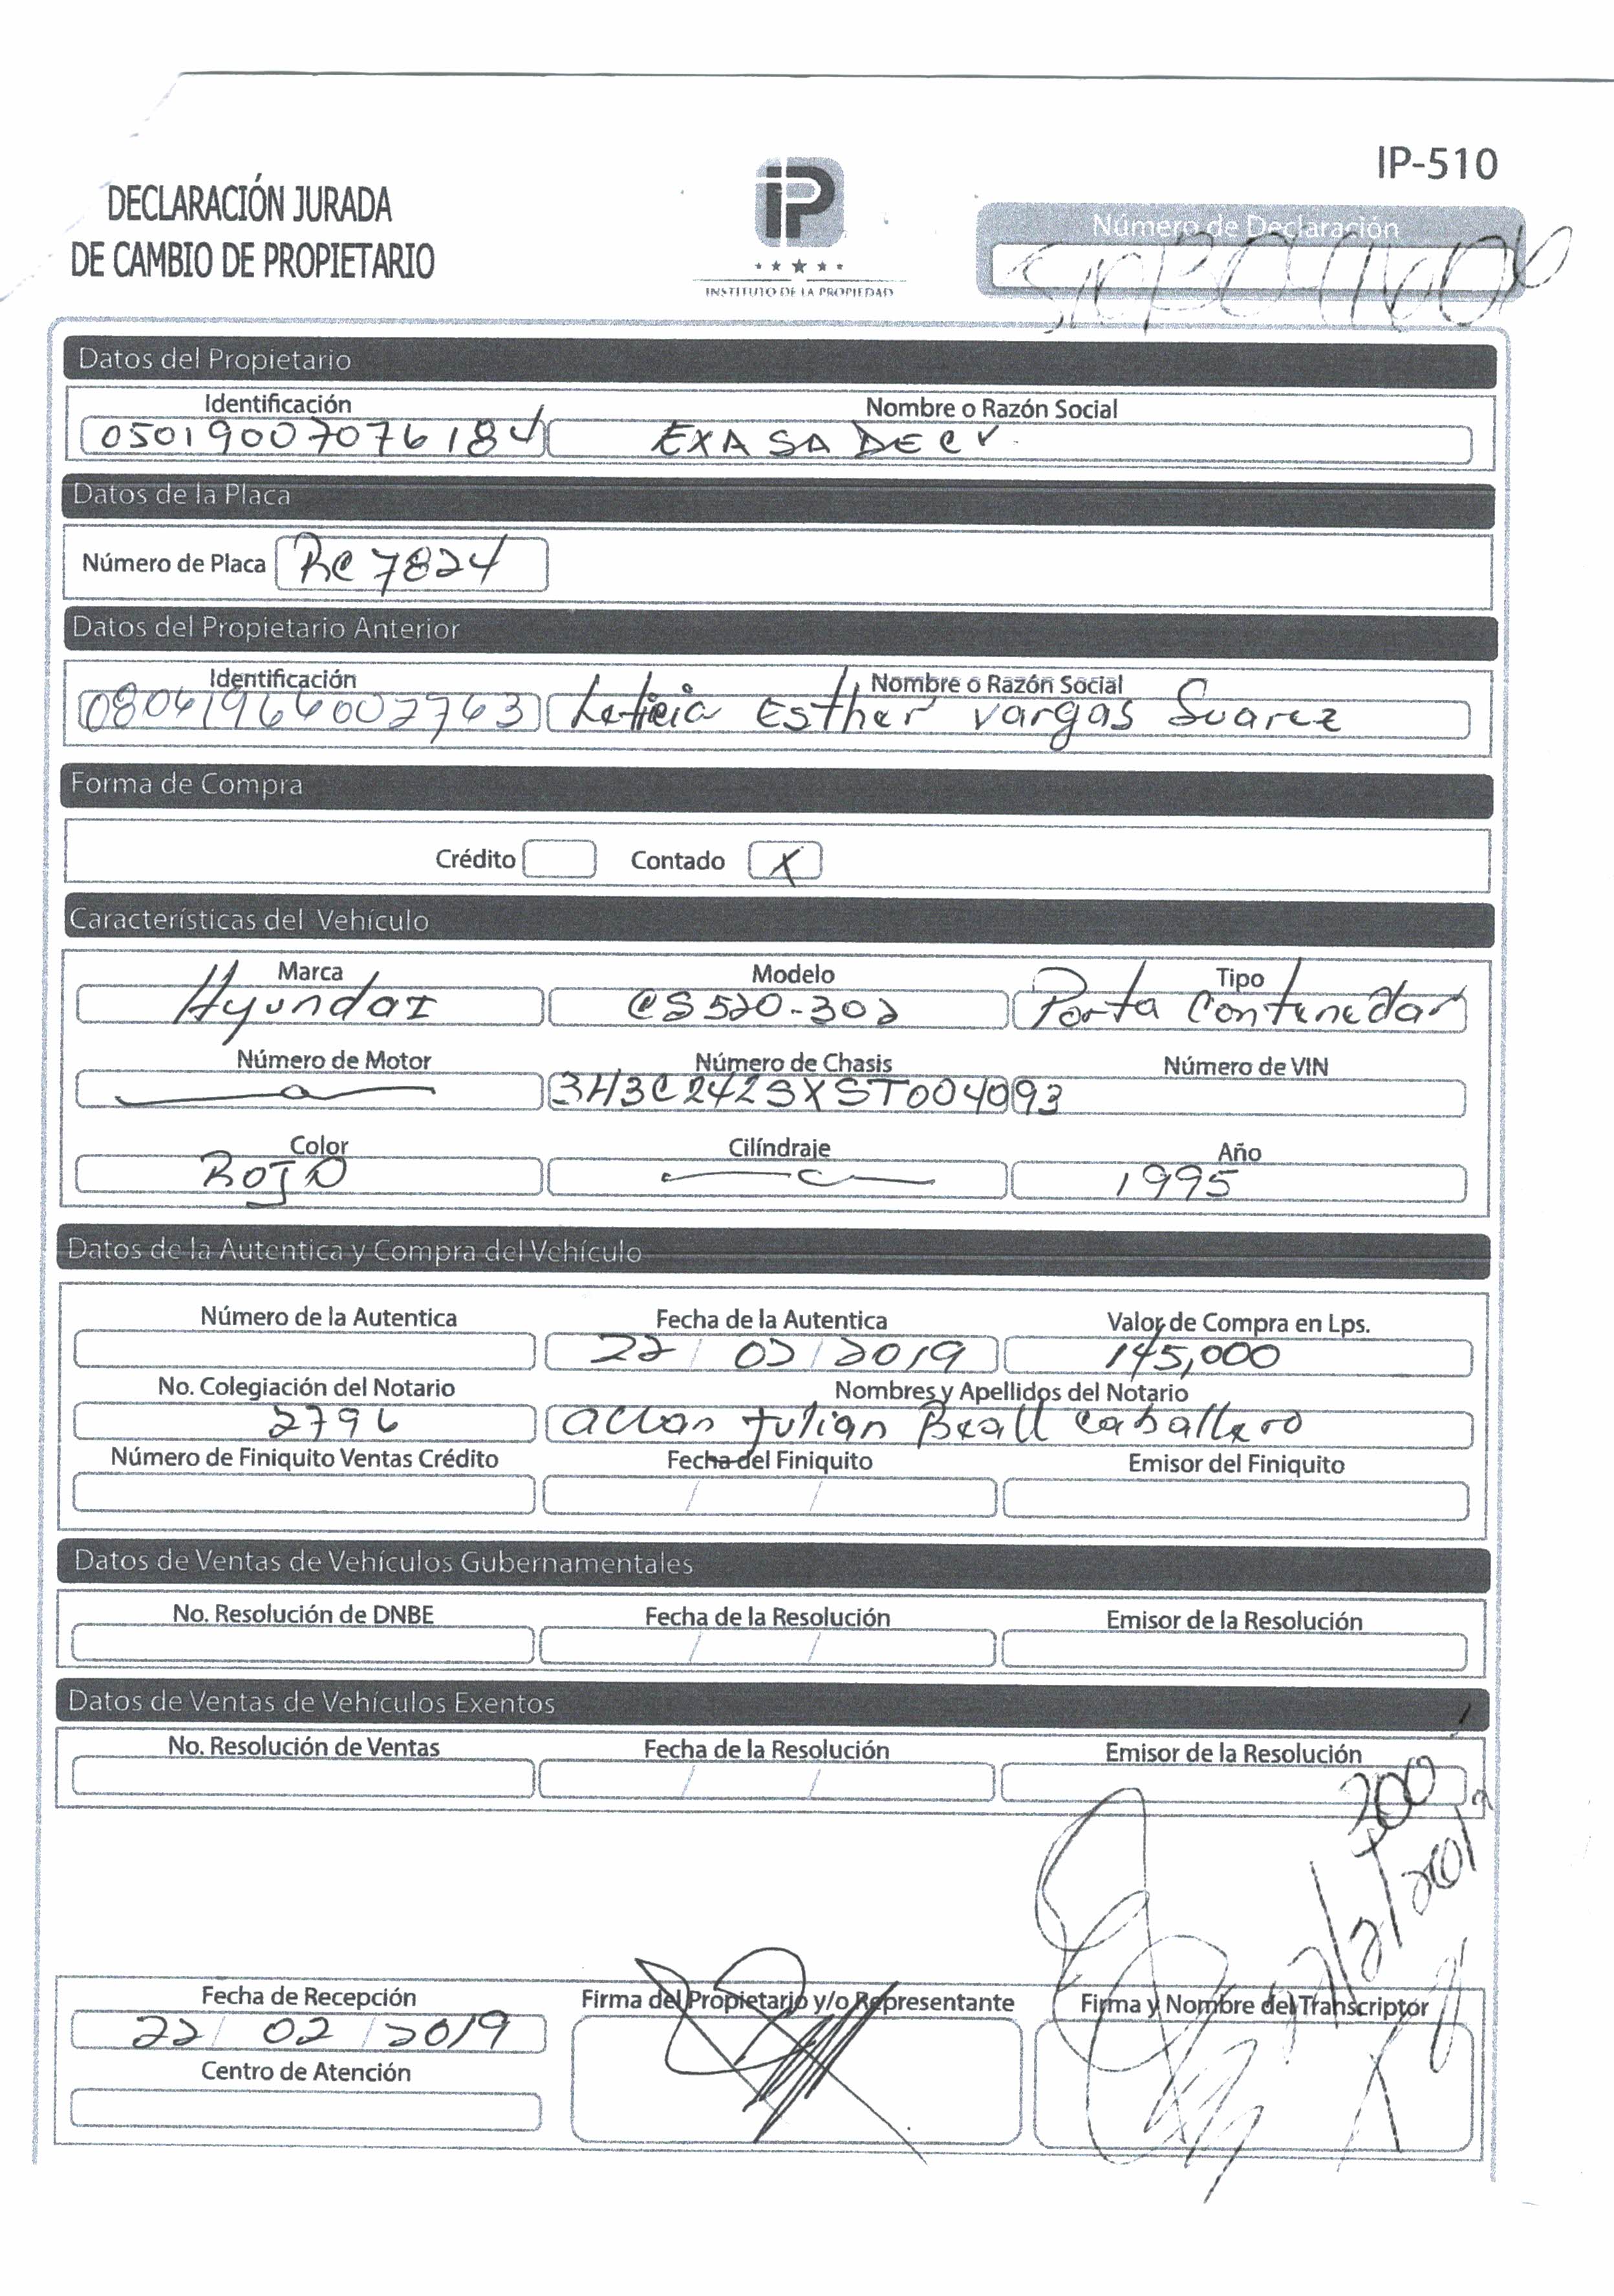 IP-510
DECLARACIÓN JURADA
DE CAMBIO DE PROPIETARIO
iP
INSTITUTO DE LA PROPIEDAD
Número de Declaración
Datos del Propietario
Identificación Nombre o Razón Social
05019007076184 EXA SA DE CV
Datos de la Placa
Número de Placa RC 7824
Datos del Propietario Anterior
Identificación Nombre o Razón Social
08041964002763 Leticia Esther Vargas Suarez
Forma de Compra
Crédito Contado X
Características del Vehículo
Marca Modelo Tipo
Hyundai CS520-302 Porta Contenedor
Número de Motor Número de Chasis Número de VIN
3H3C242SXST004093
Color Cilíndraje Año
ROJO 1995
Datos de la Autentica y Compra del Vehículo
Número de la Autentica Fecha de la Autentica Valor de Compra en Lps.
22 / 02 / 2019 145,000
No. Colegiación del Notario Nombres y Apellidos del Notario
2796 allan Julian Beall Caballero
Número de Finiquito Ventas Crédito Fecha del Finiquito Emisor del Finiquito
/ /
Datos de Ventas de Vehículos Gubernamentales
No. Resolución de DNBE Fecha de la Resolución Emisor de la Resolución
/ /
Datos de Ventas de Vehículos Exentos
No. Resolución de Ventas Fecha de la Resolución Emisor de la Resolución
/ /
200
Fecha de Recepción Firma del Propietario y/o Representante Firma y Nombre del Transcriptor
22 / 02 / 2019
Centro de Atención